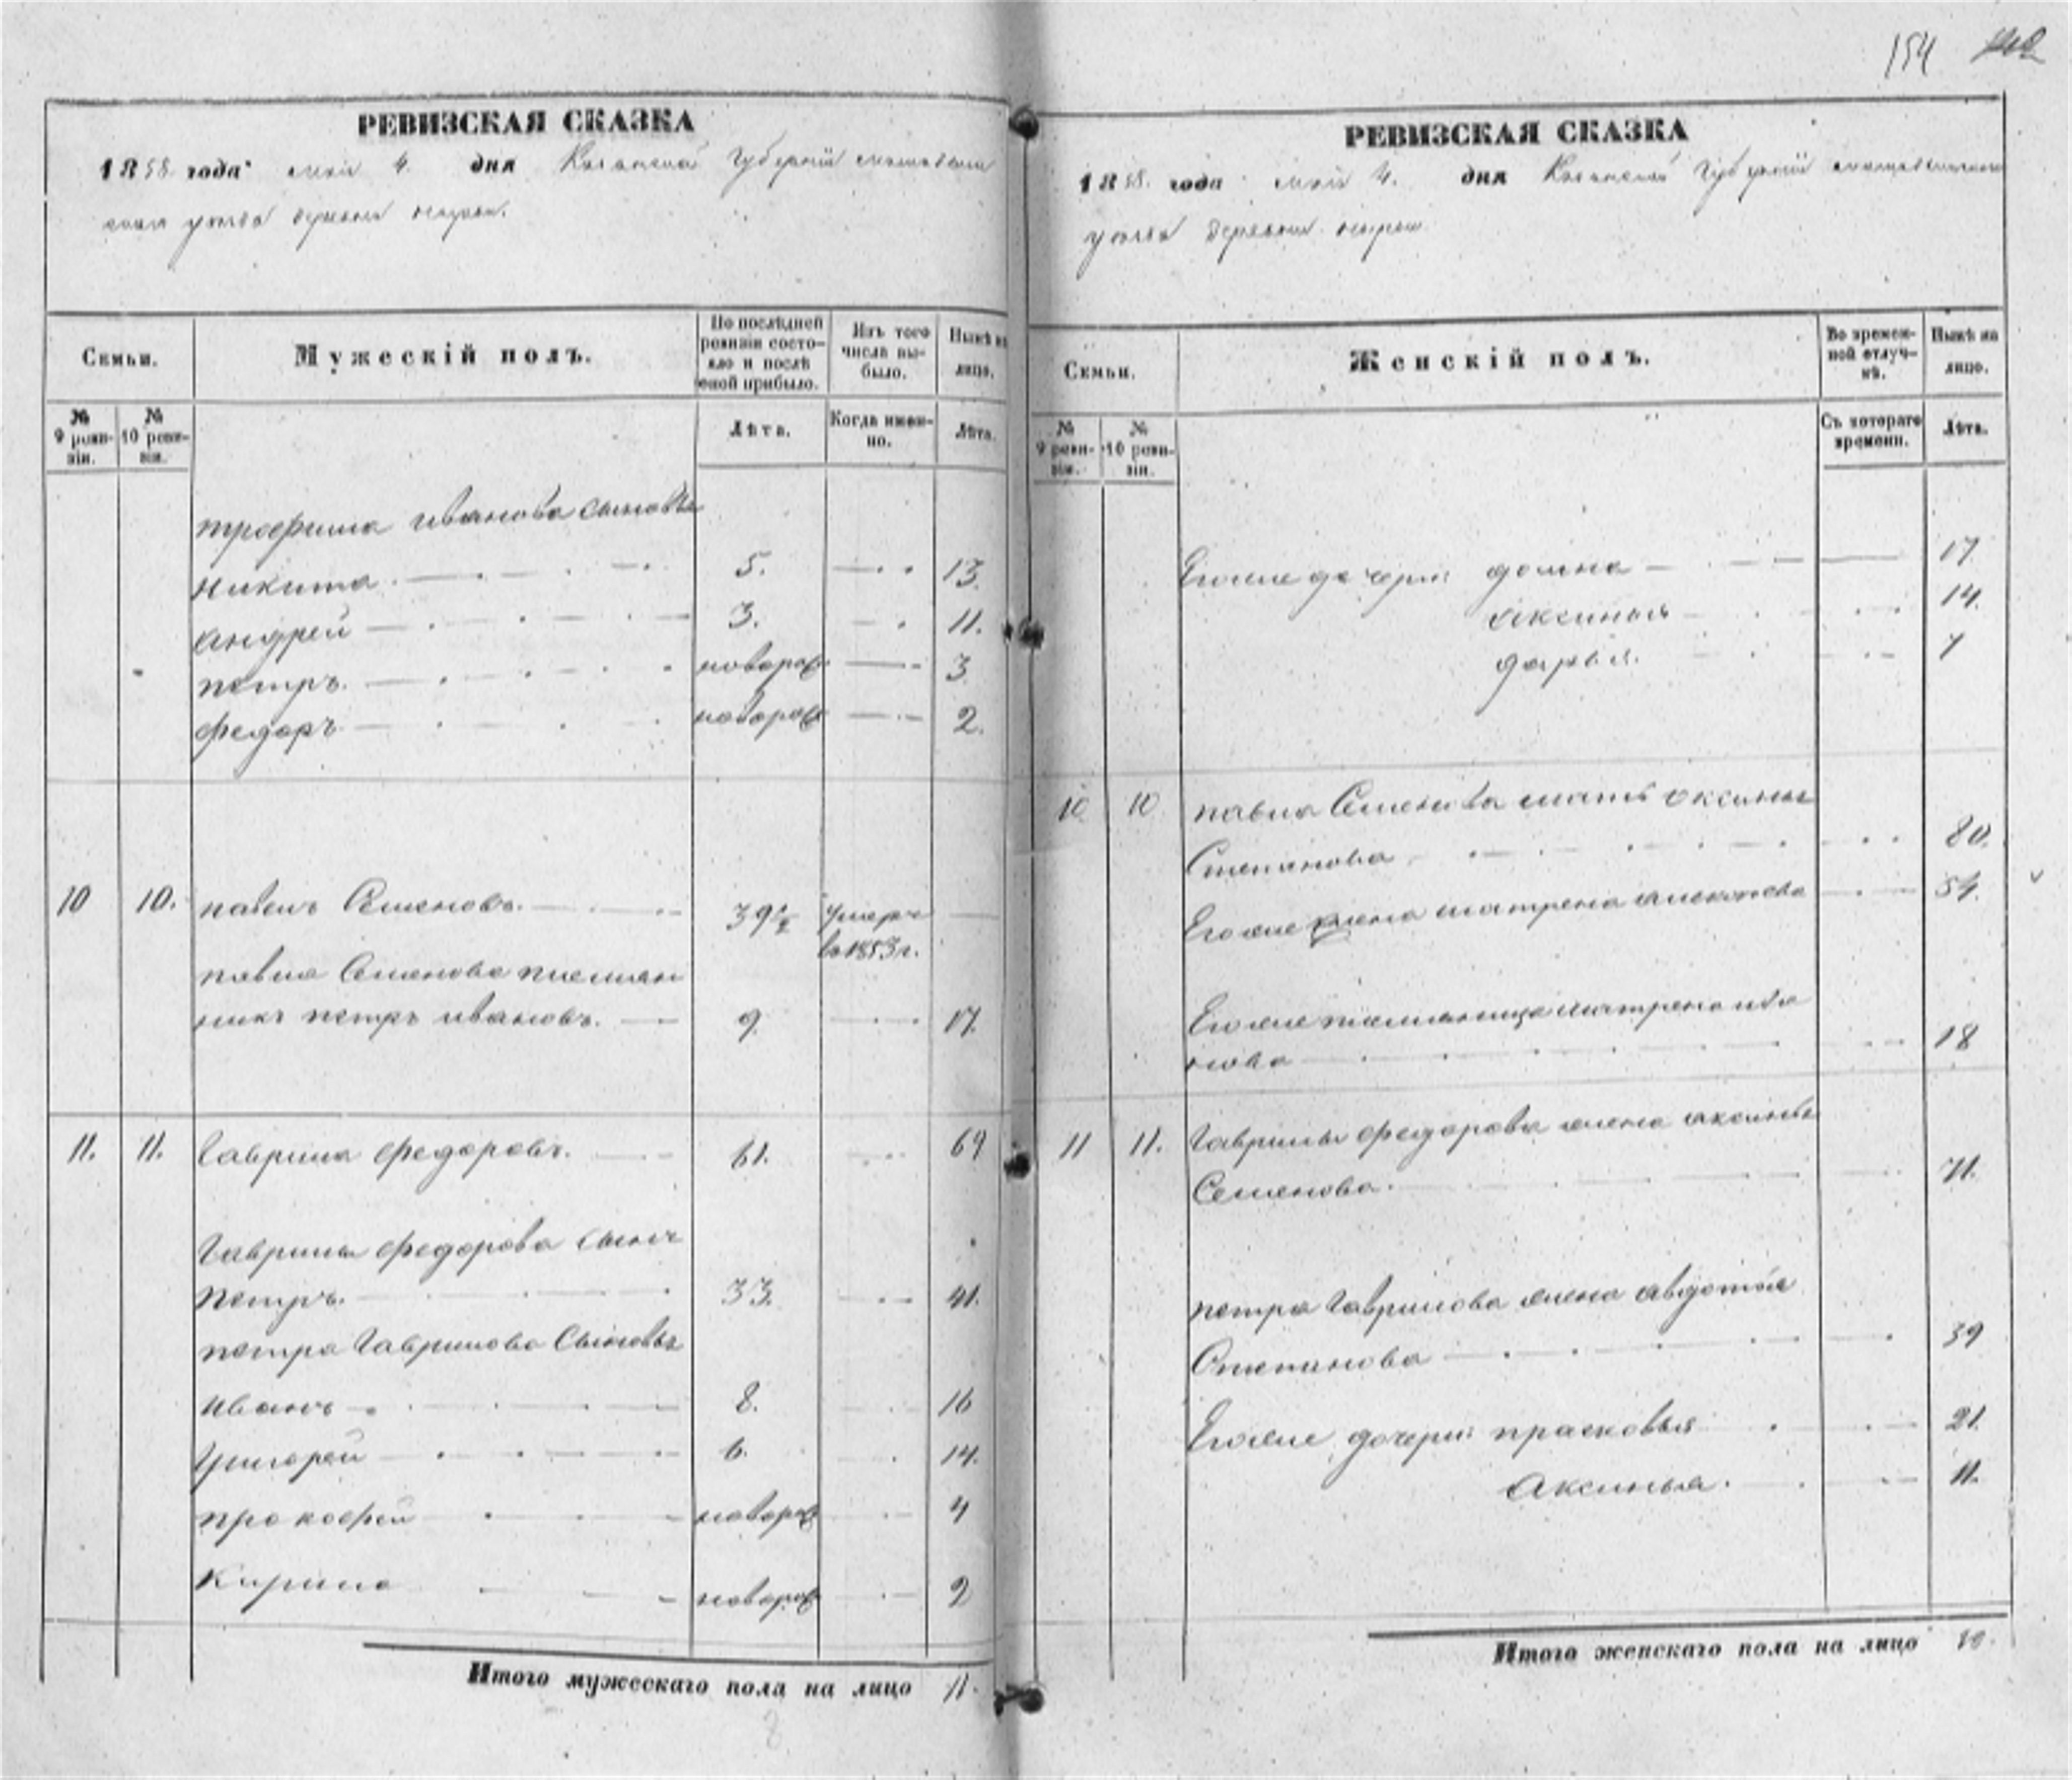 154
РЕВИЗСКАЯ СКАЗКА
1858 года мая 4. дня Казанской губернiи мамадыш
скаго уѣзда деревни
Семьи.
Мужескiй полъ.
По послѣдней ревизiи состояло и послѣ оной прибыло.
Изъ того числа выбыло.
Нынѣ на лицо.
№ 9 ревизiи.
№ 10 ревизiи.
Лѣта.
Когда именно.
Лѣта.
трофима иванова сыновья
никита 5. 13.
андрей 3. 11.
петръ новорож 3
федоръ новорож 2.
10 10. павелъ Семеновъ 39 умеръ
въ 1853 г.
павла Семенова племян
никъ петръ ивановъ. 9. 17.
11. 11. Гаврила федоровъ. 61. 69
Гаврилы федорова сынъ
петръ. 33. 41.
петра Гаврилова Сыновья
иванъ 8. 16
григорей 6. 14.
прокофей новорож 4
Кирила новорож 2
Итого мужескаго пола на лицо 11.
РЕВИЗСКАЯ СКАЗКА
1858. года мая 4. дня Казанской губернiи мамадышскаго
уѣзда деревни
Семьи.
Женскiй полъ.
Во временной отлучкѣ.
Нынѣ на лицо.
№ 9 ревизiи.
№ 10 ревизiи.
Съ котораго времени.
Лѣта.
Егоже дочери домна 17
аксинья 14.
дарья. 7
10 10 павла Семенова мать аксинья
Степанова 80.
Егоже жена матрена алексѣева 54.
Егоже племянница матрена ива
нова 18
11 11. Гаврилы федорова жена аксинья
Семенова. 71.
петра Гаврилова жена авдотья
Степанова 39
Егоже дочери прасковья 21
Аксинья. 11.
Итого женскаго пола на лицо 10.